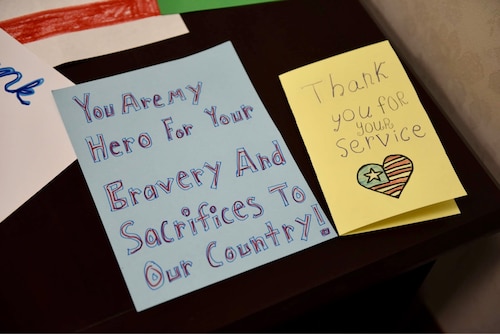 You Are My
Hero For Your
Bravery And
Sacrifices To
Our Country!
Thank
you for
your
Service